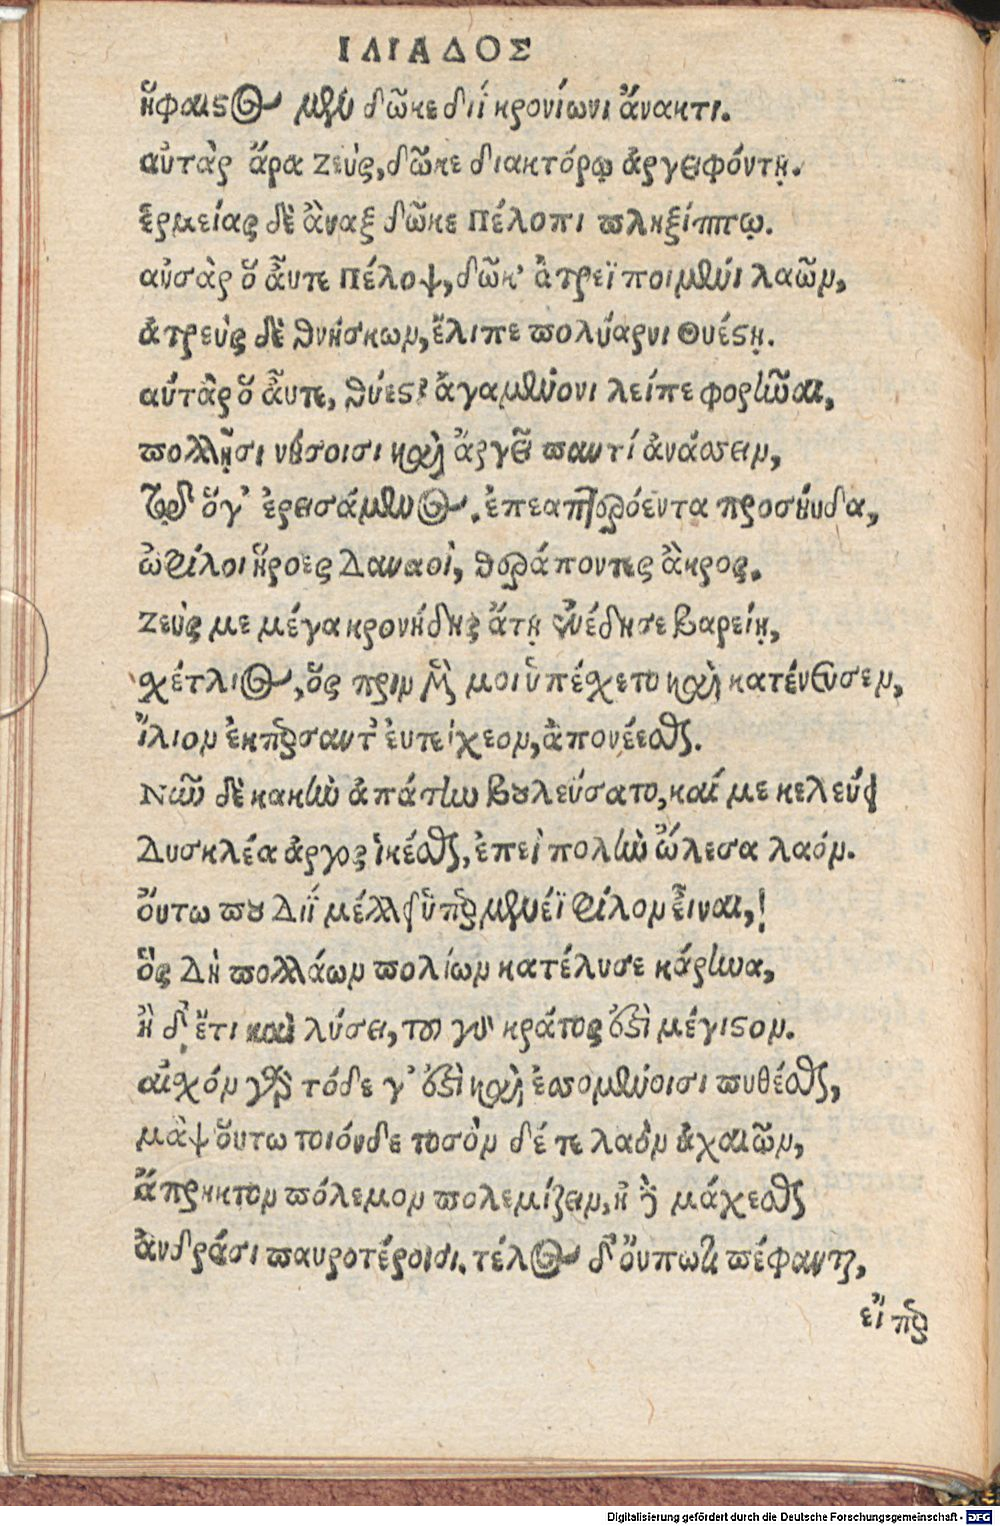 ΙΛΙΑΔΟΣ
ἥφαιστος μὲν δῶκε διῒ κρονίωνι ἄνακτι.
αὐτὰρ ἄρα Ζεὺς, δῶκε διακτόρῳ ἀργειφόντῃ.
ἑρμείας δὲ ἂναξ δῶκε Πέλοπι πληξίππῳ.
αὐσὰρ ὅ ἆυτε Πέλοψ, δῶκ' ἀτρέϊ ποιμένι λαῶν,
ἀτρεὺς δὲ θνήσκων, ἔλιπε πολύαρνι Θυέστῃ.
αὐτὰρ ὅ ἆυτε, θυέστ' ἀγαμέμνονι λεῖπε φορῆναι,
πολλῇσι νήσοισι καὶ ἄργεϊ παντί ἀνάσσειν,
τῷ δ' ὅγ' ἐρεισάμενος. ἐπεα πτερόεντα προσηύδα,
ὠ φίλοι ἥροες Δαναοὶ, θεράποντες ἂρηος.
Ζεὺς με μέγα κρονίδης ἄτῃ ἐνέδησε βαρείῃ,
σχέτλιος, ὅς πριν μὲν μοι ὑπέσχετο καὶ κατένευσεν,
ἴλιον ἐκπέρσαντ' ἐυτείχεον, ἀπονέεσθαι.
Νῦν δὲ κακὴν ἀπάτην βουλεύσατο, καί με κελεύει
Δυσκλέα ἀργος ἱκέσθαι, ἐπεὶ πολὺν ὤλεσα λαόν.
Ὄυτω που Διῒ μέλλει ὑπερμενέϊ φίλον ἐῖναι,
ὃς Δὴ πολλάων πολίων κατέλυσε κάρηνα,
ἢ δ' ἔτι καὶ λύσει, του γὰρ κράτος ἐστὶ μέγιστον.
αἰσχόν γὰρ τόδε γ' ἐστὶ καὶ ἐσσομένοισι πυθέσθαι,
μὰψ ὅυτω τοιόνδε τοσὸν δέ τε λαὸν ἀχαιῶν,
ἄπρηκτον πόλεμον πολεμίζειν, ἠ δὲ μάχεσθαι
ἀνδράσι παυροτέροισι. τέλος δ' ὄυπω τι πέφανται,
εἴ περ
Digitalisierung gefördert durch die Deutsche Forschungsgemeinschaft - DFG